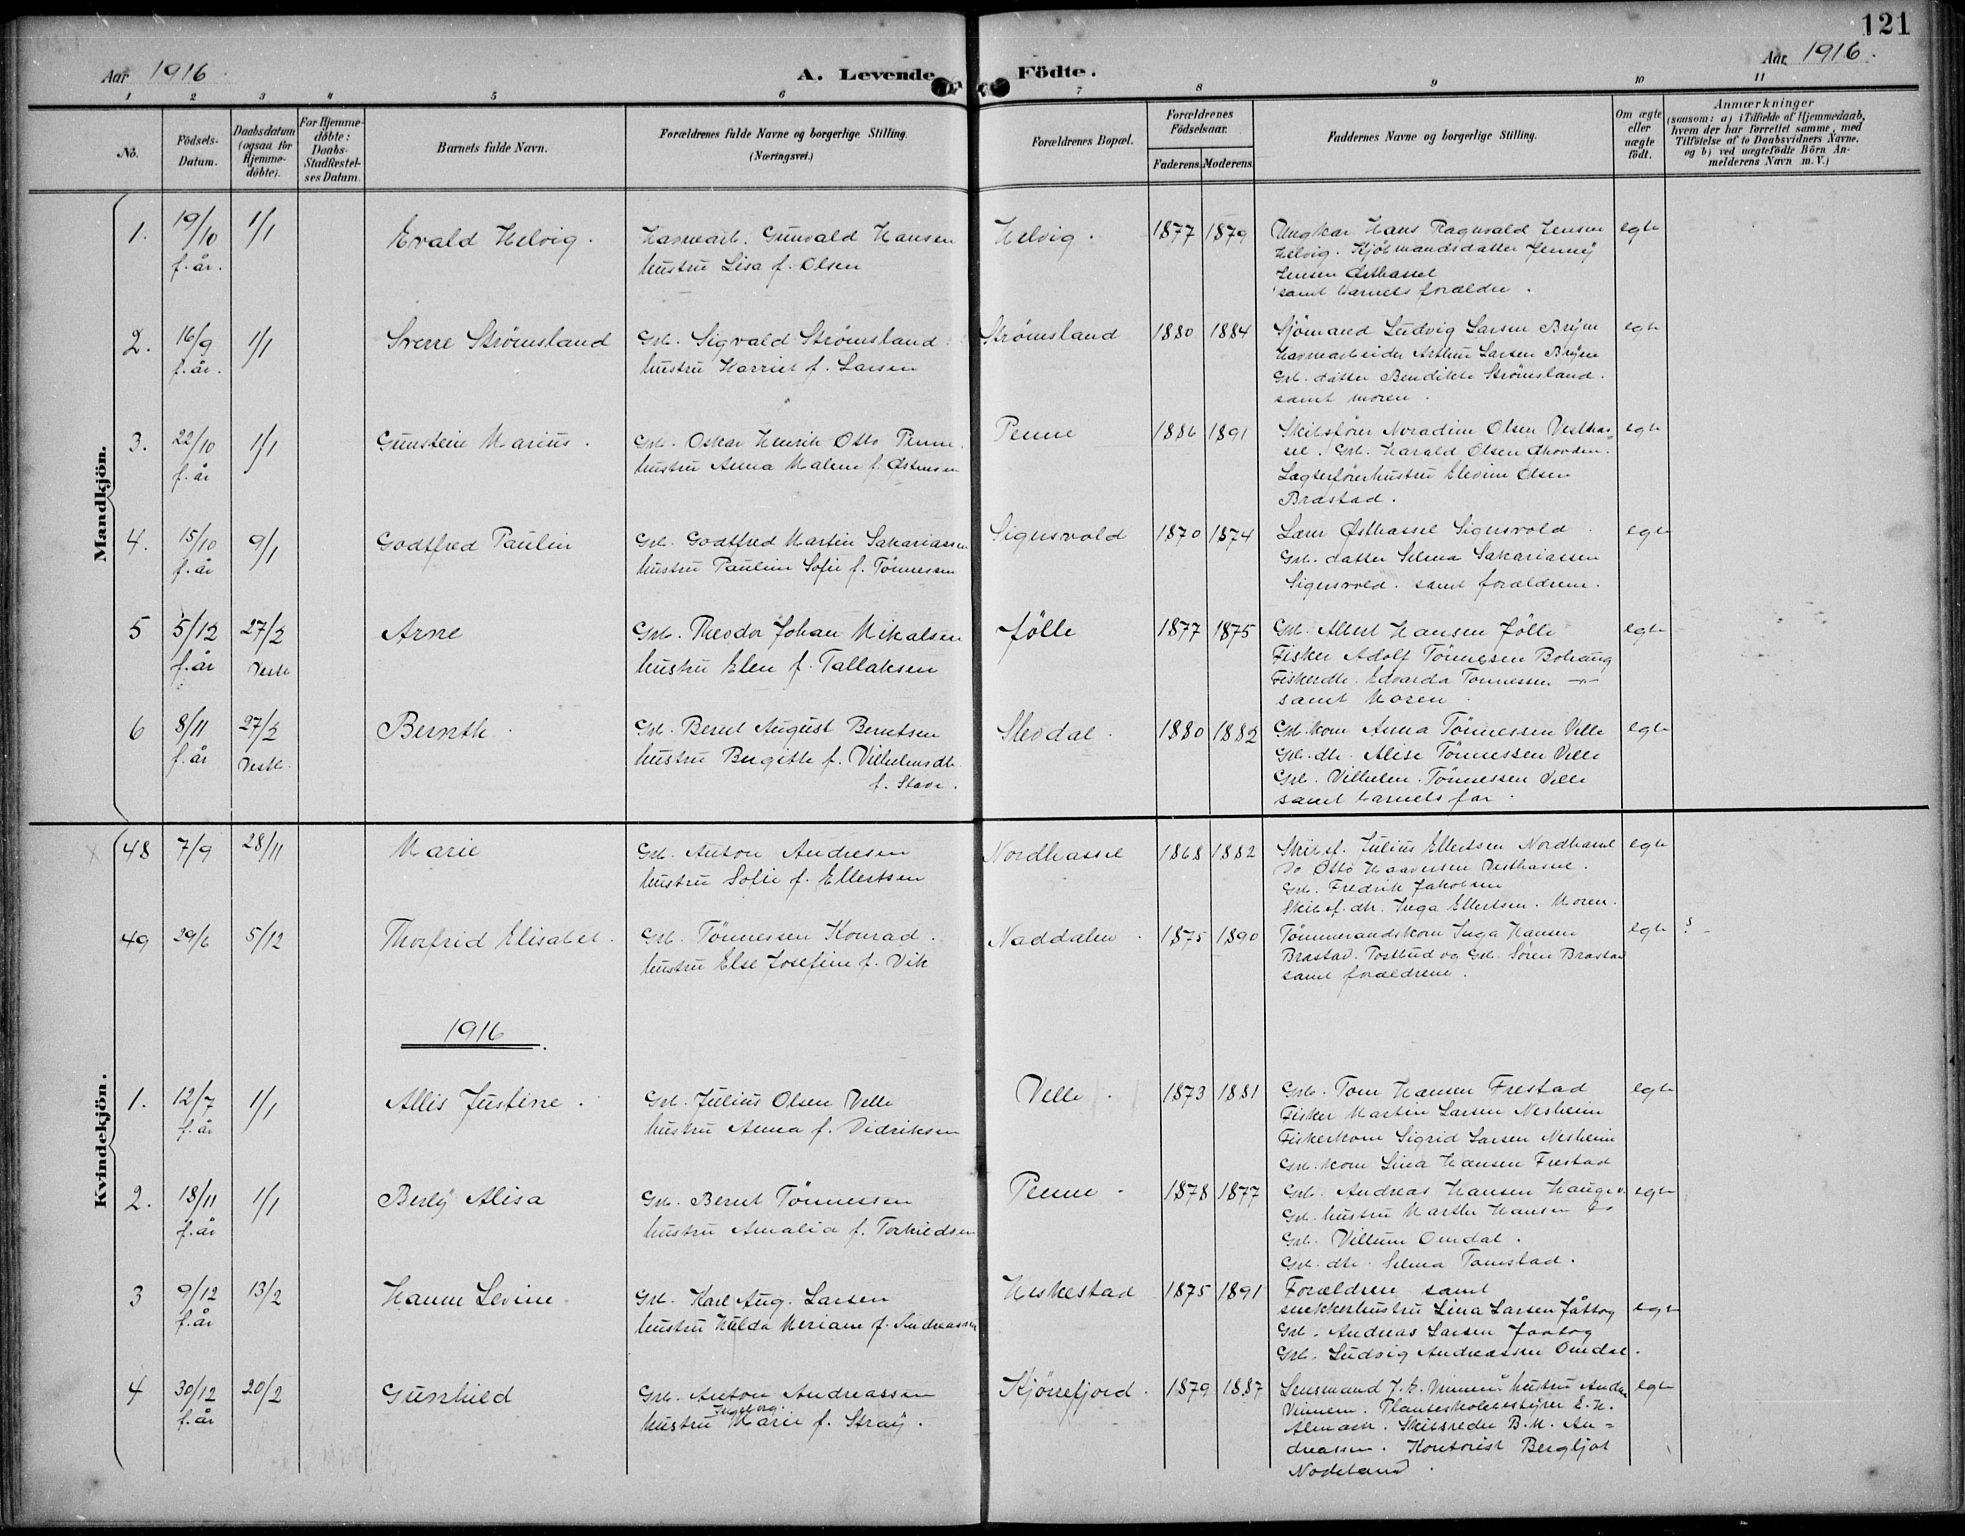 121
Aar 1916.
A. Levende Födte.
Aar 1916.
1 2 3 4 5 6 7 8 9 10 11
No.
Födsels-
Datum.
Daabsdatum
(ogsaa for
Hjemme-
döbte).
For Hjemme-
döbte:
Daabs-
Stadfæstel-
ses Datum.
Barnets fulde Navn.
Forældrenes fulde Navne og borgerlige Stilling.
(Næringsvei.)
Forældrenes Bopæl.
Forældrenes
Födselsaar.
Faderens. Moderens.
Faddernes Navne og borgerlige Stilling.
Om ægte
eller
uægte
født.
Anmærkninger
(saasom: a) i Tilfælde af Hjemmedaab,
hvem der har forrettet samme, med
Tilföielse af to Daabsvidners Navne.
og b) ved uægtefödte Börn An-
melderens Navn m. V.)
Mandkjön.
1. 19/10 f. år. 1/1 Evald Helvig.
Havnearb. Gunvald Hansen
hustru Lisa f. Olsen
Helvig. 1877 1879
Ungkar Hans Ragnvald Jensen
Helvig. Kjøbmandsdatter Jenny
Jensen Østhassel
samt barnets forældre.
egte
2. 16/9 f. år. 1/1 Sverre Strømsland
Grb. Sigvald Strømsland
hustru Harriet f. Larsen
Strømsland 1880 1884
Sjømand Ludvig Larsen Bryne
Havnearbeider Arthur Larsen Bryne
Grb. datter Bendikte Strømsland.
samt moren.
egte
3. 22/10 f. år 1/1 Gunstein Marius.
Grb. Oskar Henrik Otto Penne.
hustru Anna Malene f. Østensen
Penne 1886 1891
Skibsfører Noradine Olsen Vesthas-
sel. Grb. Harald Olsen
Lagterførerhustru Elevine Olsen
Brastad.
egte
4. 15/10 f. år 9/1 Godtfred Paulin
Grb. Godtfred Martin Sakariassen
hustru Pauline Sofie f. Tønnessen
Sigersvold 1870 1874
Lærer Østhassel Sigersvold
Grb. datter Selma Sakariassen
Sigersvold. samt forældrene.
egte
5 5/12 f. år 27/2 Vestb. Arne
Grb. Theodor Johan Mikalsen
hustru Elen f. Tallaksen
Jølle 1877 1875
Grb. Albert Hansen Jølle
Fisker Adolf Tønnesen Bohaug
Fiskerdtr. Edvarda Tønnessen -"-
samt Moren
egte
6 8/11 f. år 27/2 Vestb. Bernth.
Grb. Bernt August Berntsen
hustru Birgitte f. Vilhelmsdtr.
f. Stave.
Slevdal. 1880 1882
Grb. kone Anna Tønnessen Velle
Grb. dtr. Alise Tønnessen Velle
Grb. Vilhelm Tønnessen Velle
samt barnets far.
egte
Kvindekjön.
X 48 7/9 28/11 Marie
Grb. Anton Andresen
hustru Sofie f. Ellertsen
Nordhassel 1868 1882
Skibsf. Julius Ellertsen Nordhassel
Do Otto Haaversen Vesthassel.
Grb. Fredrik Jakobsen
Skibsf. dtr. Inga Ellertsen. Moren.
egte
49 29/6 5/12 Thorfrid Elisabet.
Grb. Tønnessen Konrad.
hustru Else Josefine f. Vik
Naddalen. 1875 1890
Tømmermandskone Inga Hansen
Brastad. Postbud og Grb. Søren Brastad
samt forældrene.
egte ?
1916
1. 12/7 f. år 1/1 Allis Justine.
Grb. Julius Olsen Velle
hustru Anna f. Vidriksen
Velle. 1873 1881
Grb. Tom Hansen Frestad
Fisker Martin Larsen Nesheim
Fiskerkone Sigrid Larsen Nesheim
Grb. kone Lina Hansen Frestad
egte
2. 18/11 f. år 1/1 Berly Alisa
Grb. Bernt Tønnessen
hustru Amalia f. Torkildsen
Penne. 1878 1877
Grb. Andreas Hansen Hauge.
Grb. hustru Marthe Hansen Do
Grb. Villum Omdal.
Grb. dtr. Selma Tomstad.
egte
3 9/12 f. år 13/2 Hanne Levine.
Grb. Karl Aug. Larsen
hustru Hulda Meriane f. Andreassen
Heskestad 1875 1891
Forældrene samt
snekkerhustru Lina Larsen Jåttog
Grb. Andreas Larsen Jaatog
Grb. Ludvig Andreassen Omdal.
egte
4 30/12 f. år 20/2 Gunhild
Grb. Anton Andreassen
Ingeborg.
hustru Marie f. Stray.
Kjørrefjord. 1879 1887
Lensmand J. K. Vinnem hustru
Vinnem. Planteskolebestyrer E. H.
Skibsreder B. M. An-
dreassen. Kontorist Bergljot
Nodeland.
egte